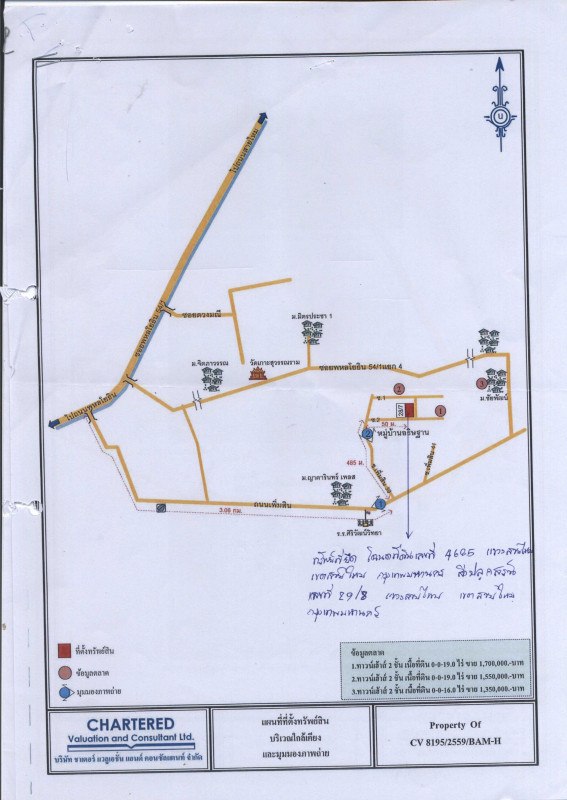 น
ไปถนนสายไหม
ซอยพหลโยธิน 54/1
ซอยดวงมณี
ม.มิตรประชา 1
วัดเกาะสุวรรณาราม
ม.จิตภาวรรณ
ซอยพหลโยธิน 54/1แยก 4
3
ม.ชัยพัฒน์
ไปถนนพหลโยธิน
2
ซ.1
28/7
1
ซ.2
50 ม.
2
หมู่บ้านอธิษฐาน
485 ม.
ม.ญาดารินทร์ เพลส
ถนนเพิ่มสิน
1
3.08 กม.
ร.ร.ศิริวัฒน์วิทยา
ทรัพย์ที่ยึด โฉนดที่ดินเลขที่ 4625 แขวงสายไหม
เขตสายไหม กรุงเทพมหานคร สิ่งปลูกสร้าง
เลขที่ 29/8 แขวงสายไหม เขตสายไหม
กรุงเทพมหานคร
ที่ตั้งทรัพย์สิน
ข้อมูลตลาด
มุมมองภาพถ่าย
ข้อมูลตลาด
1.ทาวน์เฮ้าส์ 2 ชั้น เนื้อที่ดิน 0-0-19.0 ไร่ ขาย 1,700,000.-บาท
2.ทาวน์เฮ้าส์ 2 ชั้น เนื้อที่ดิน 0-0-19.0 ไร่ ขาย 1,550,000.-บาท
3.ทาวน์เฮ้าส์ 2 ชั้น เนื้อที่ดิน 0-0-16.0 ไร่ ขาย 1,350,000.-บาท
CHARTERED
Valuation and Consultant Ltd.
บริษัท ชาเตอร์ แวลูเอชั่น แอนด์ คอนซัลแตนท์ จำกัด
แผนที่ที่ตั้งทรัพย์สิน
บริเวณใกล้เคียง
และมุมมองภาพถ่าย
Property Of
CV 8195/2559/BAM-H